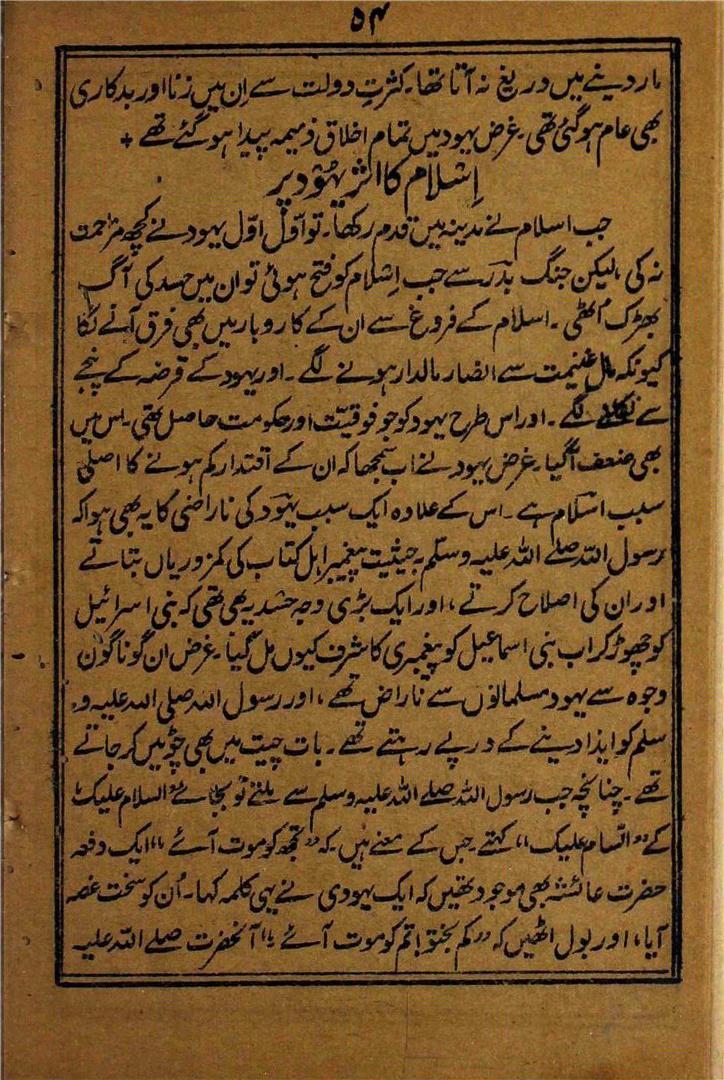 ۵۴
مار دینے میں دریغ نہ آتا تھا۔ کثرتِ دولت سے اِن میں زنا اور بدکاری
بھی عام ہوگئی تھی۔ غرض یہود میں تمام اخلاق ذمیمہ پیدا ہوگئے تھے +
اِسْلام کا اثر یہُود پر
جب اسلام نے مدینہ میں قدم رکھا۔ تو اوّل اوّل یہود نے کچھ مزاحمت
نہ کی، لیکن جنگ بدر سے جب اِسْلام کو فتح ہوئی تو ان میں حسد کی آگ
بھڑک اُٹھی۔ اسلام کے فروغ سے ان کے کاروبار میں بھی فرق آنے لگا
کیونکہ مالِ غنیمت سے انصار مالدار ہونے لگے۔ اور یہود کے قرضہ کے پنجے
سے نکلنے لگے۔ اور اس طرح یہود کو جو فوقیّت اور حکومت حاصل تھی۔ اس میں
بھی ضعف آگیا۔ غرض یہود نے اب سمجھا کہ ان کے اقتدار کم ہونے کا اصلی
سبب اسلام ہے۔ اس کے علاوہ ایک سبب یہود کی ناراضی کا یہ بھی ہوا کہ
رسول اللہ صلے اللہ علیہ وسلم بحیثیت پیغمبر اہل کتاب کی کمزوریاں بتاتے
اور ان کی اصلاح کرتے، اور ایک بڑی وجہ حسد یہ بھی تھی کہ بنی اسرائیل
کو چھوڑ کر اب بنی اسماعیل کو پیغمبری کا شرف کیوں مل گیا۔ غرض ان گوناگون
وجوہ سے یہود مسلمانوں سے ناراض تھے، اور رسول اللہ صلی اللہ علیہ و
سلم کو ایذا دینے کے درپے رہتے تھے۔ بات چیت میں بھی چوٹیں کر جاتے
تھے۔ چنانچہ جب رسول اللہ صلے اللہ علیہ وسلم سے ملتے تو بجائے "السلام علیک"
کے "السّام علیک" کہتے جس کے معنے ہیں۔ کہ "تجھ کو موت آئے" ایک دفعہ
حضرت عائشہ بھی موجود تھیں کہ ایک یہودی نے یہی کلمہ کہا۔ اُن کو سخت غصہ
آیا، اور بول اٹھیں کہ "کم بختو! تم کو موت آئے" آنحضرت صلے اللہ علیہ